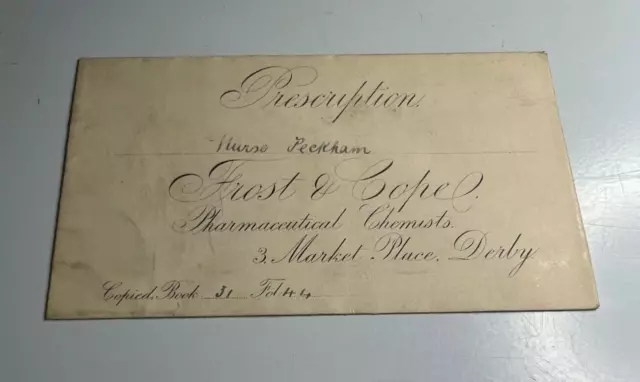 Prescription.
Nurse Peckham
Frost & Cope.
Pharmaceutical Chemists.
3. Market Place. Derby
Copied. Book 31 Fol 44